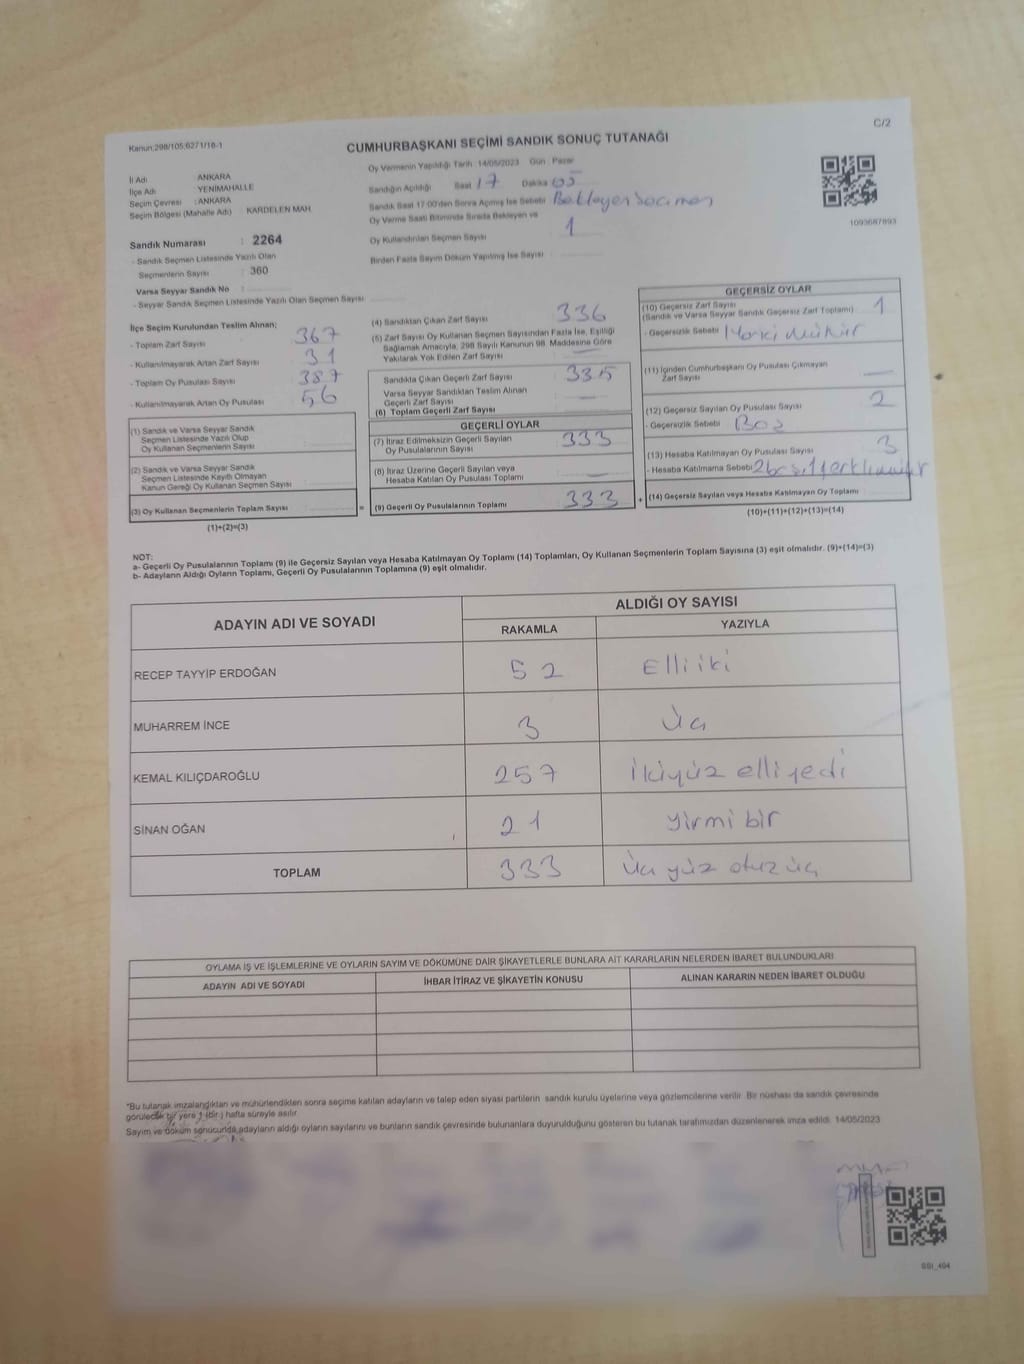 C/2
Kanun:298/105;6271/18-1
CUMHURBAŞKANI SEÇİMİ SANDIK SONUÇ TUTANAĞI
İl Adı ANKARA
İlçe Adı YENİMAHALLE
Seçim Çevresi : ANKARA
Seçim Bölgesi (Mahalle Adı) : KARDELEN MAH.
Sandık Numarası : 2264
- Sandık Seçmen Listesinde Yazılı Olan
Seçmenlerin Sayısı : 360
Varsa Seyyar Sandık No :
- Seyyar Sandık Seçmen Listesinde Yazılı Olan Seçmen Sayısı
Oy Vermenin Yapıldığı Tarih 14/05/2023 Gün : Pazar
Sandığın Açıldığı Saat 17 Dakika 05
Sandık Saat 17:00'den Sonra Açılmış İse Sebebi Bekleyen seçmen
Oy Verme Saati Bitiminde Sırada Bekleyen ve
Oy Kullandırılan Seçmen Sayısı 1
Birden Fazla Sayım Döküm Yapılmış İse Sayısı
1093687893
İlçe Seçim Kurulundan Teslim Alınan;
- Toplam Zarf Sayısı 367
- Kullanılmayarak Artan Zarf Sayısı 31
- Toplam Oy Pusulası Sayısı 387
- Kullanılmayarak Artan Oy Pusulası 56
(1) Sandık ve Varsa Seyyar Sandık
Seçmen Listesinde Yazılı Olup
Oy Kullanan Seçmenlerin Sayısı
(2) Sandık ve Varsa Seyyar Sandık
Seçmen Listesinde Kayıtlı Olmayan
Kanun Gereği Oy Kullanan Seçmen Sayısı
(3) Oy Kullanan Seçmenlerin Toplam Sayısı =
(1)+(2)=(3)
(4) Sandıktan Çıkan Zarf Sayısı 336
(5) Zarf Sayısı Oy Kullanan Seçmen Sayısından Fazla İse, Eşitliği
Sağlamak Amacıyla, 298 Sayılı Kanunun 98. Maddesine Göre
Yakılarak Yok Edilen Zarf Sayısı —
Sandıkta Çıkan Geçerli Zarf Sayısı 335
Varsa Seyyar Sandıktan Teslim Alınan
Geçerli Zarf Sayısı —
(6) Toplam Geçerli Zarf Sayısı
GEÇERLİ OYLAR
(7) İtiraz Edilmeksizin Geçerli Sayılan
Oy Pusulasının Sayısı 333
(8) İtiraz Üzerine Geçerli Sayılan veya
Hesaba Katılan Oy Pusulası Toplamı —
(9) Geçerli Oy Pusulalarının Toplamı 333 +
GEÇERSİZ OYLAR
(10) Geçersiz Zarf Sayısı
(Sandık ve Varsa Seyyar Sandık Geçersiz Zarf Toplamı) 1
- Geçersizlik Sebebi Harici Mühür
(11) İçinden Cumhurbaşkanı Oy Pusulası Çıkmayan
Zarf Sayısı —
(12) Geçersiz Sayılan Oy Pusulası Sayısı 2
- Geçersizlik Sebebi Boş
(13) Hesaba Katılmayan Oy Pusulası Sayısı 3
- Hesaba Katılmama Sebebi
(14) Geçersiz Sayılan veya Hesaba Katılmayan Oy Toplamı
(10)+(11)+(12)+(13)=(14)
NOT:
a- Geçerli Oy Pusulalarının Toplamı (9) ile Geçersiz Sayılan veya Hesaba Katılmayan Oy Toplamı (14) Toplamları, Oy Kullanan Seçmenlerin Toplam Sayısına (3) eşit olmalıdır. (9)+(14)=(3)
b- Adayların Aldığı Oyların Toplamı, Geçerli Oy Pusulalarının Toplamına (9) eşit olmalıdır.
ADAYIN ADI VE SOYADI ALDIĞI OY SAYISI
RAKAMLA YAZIYLA
RECEP TAYYİP ERDOĞAN 52 Elli iki
MUHARREM İNCE 3 üç
KEMAL KILIÇDAROĞLU 257 ikiyüz elli yedi
SİNAN OĞAN 21 yirmi bir
TOPLAM 333 üç yüz otuz üç
OYLAMA İŞ VE İŞLEMLERİNE VE OYLARIN SAYIM VE DÖKÜMÜNE DAİR ŞİKAYETLERLE BUNLARA AİT KARARLARIN NELERDEN İBARET BULUNDUKLARI
ADAYIN ADI VE SOYADI İHBAR İTİRAZ VE ŞİKAYETİN KONUSU ALINAN KARARIN NEDEN İBARET OLDUĞU
*Bu tutanak imzalandıktan ve mühürlendikten sonra seçime katılan adayların ve talep eden siyasi partilerin sandık kurulu üyelerine veya gözlemcilerine verilir. Bir nüshası da sandık çevresinde
görülecek bir yere 1 (bir ) hafta süreyle asılır.
Sayım ve döküm sonucunda adayların aldığı oyların sayılarını ve bunların sandık çevresinde bulunanlara duyurulduğunu gösteren bu tutanak tarafımızdan düzenlenerek imza edildi. 14/05/2023